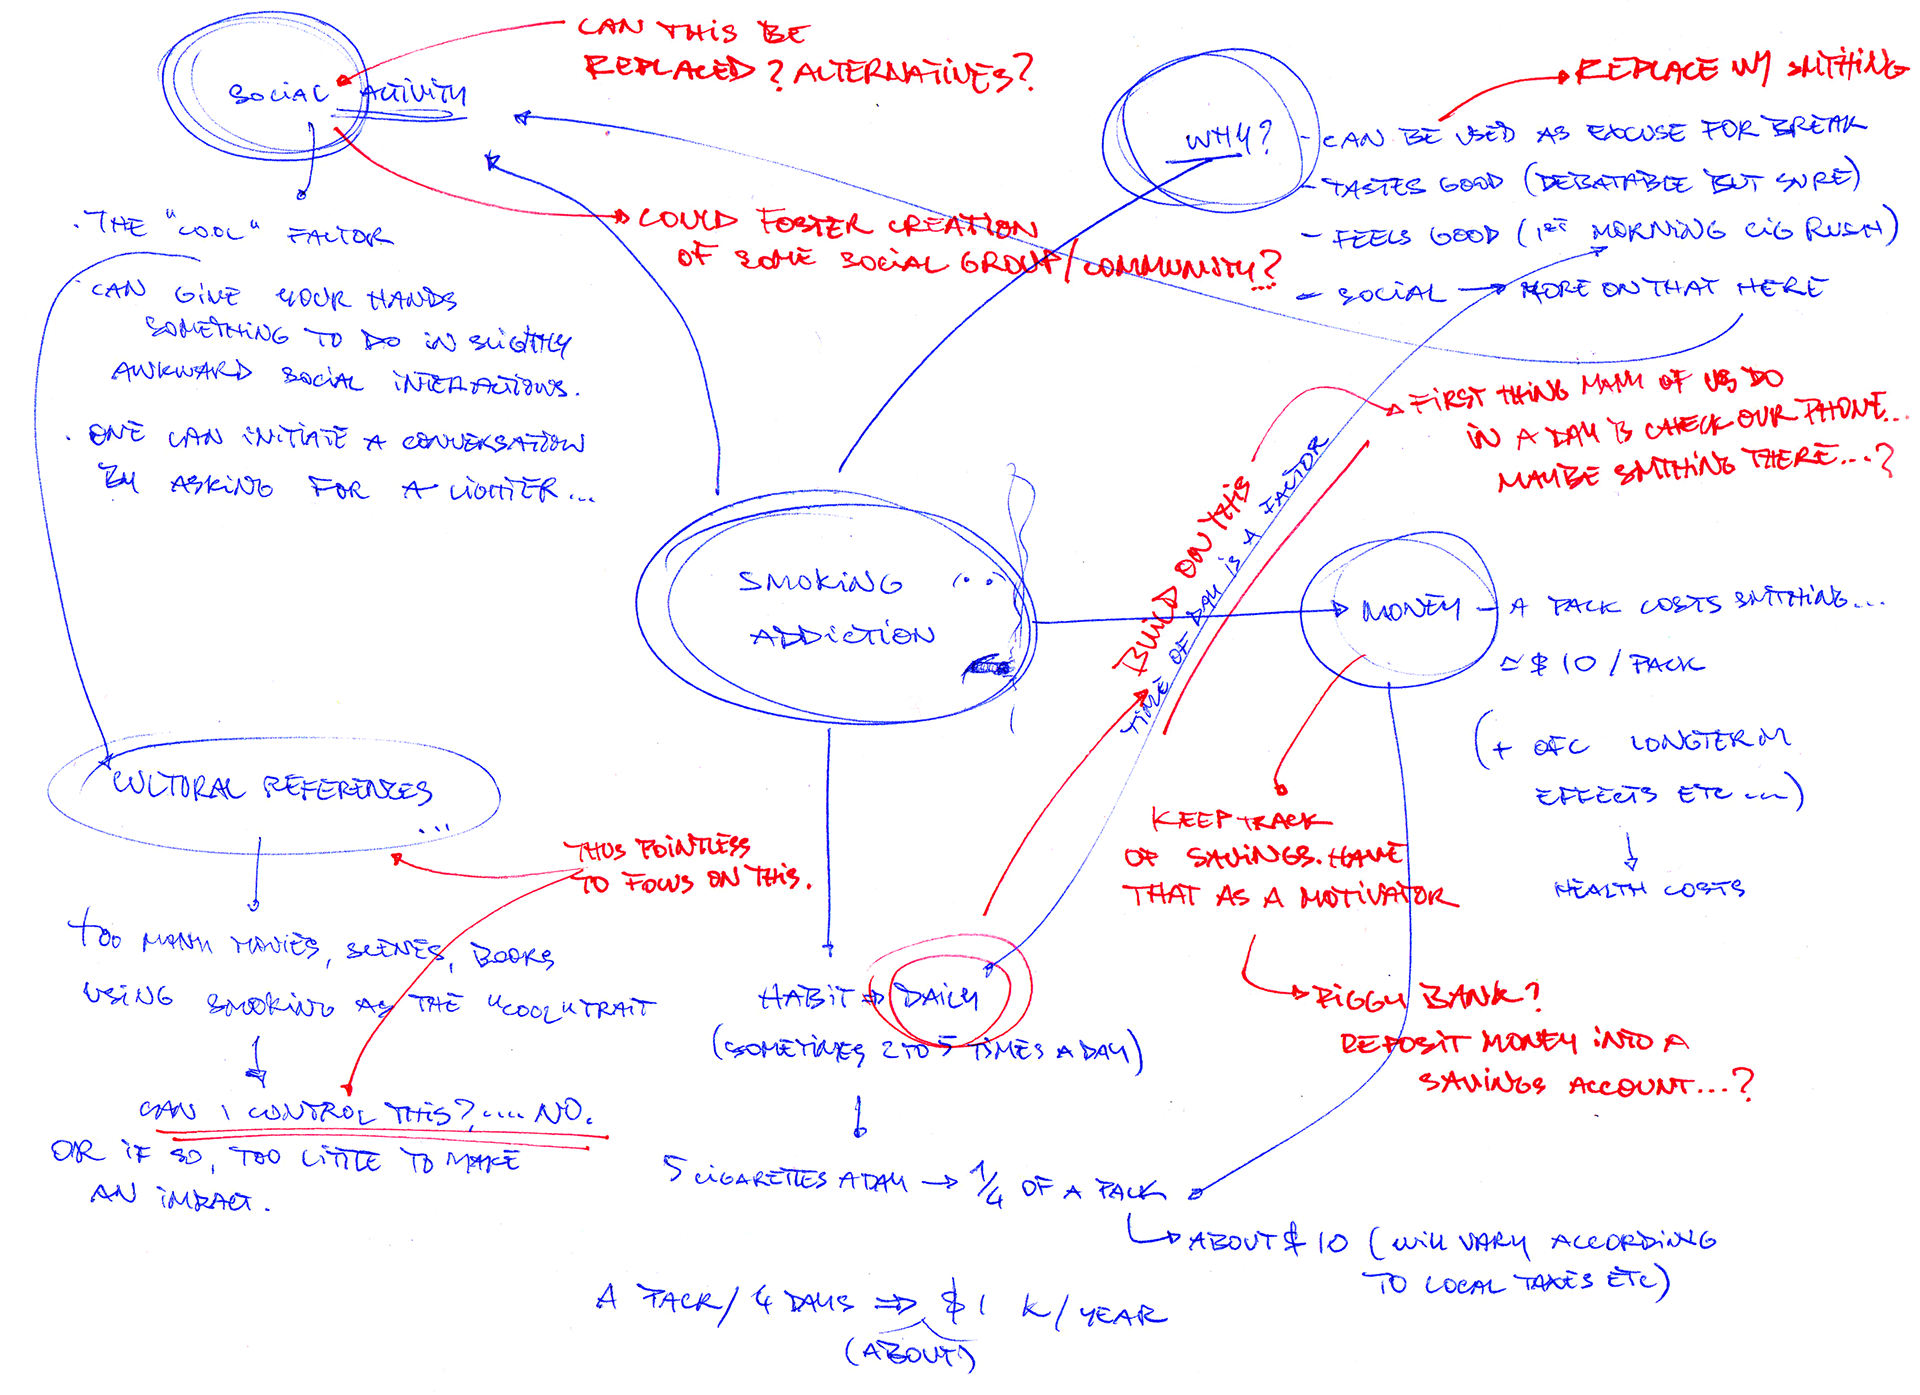 CAN THIS BE
REPLACED? ALTERNATIVES?
SOCIAL ACTIVITY
. THE "COOL" FACTOR
. CAN GIVE YOUR HANDS
SOMETHING TO DO IN SLIGHTLY
AWKWARD SOCIAL INTERACTIONS.
. ONE CAN INITIATE A CONVERSATION
BY ASKING FOR A LIGHTER...
COULD FOSTER CREATION
OF SOME SOCIAL GROUP/COMMUNITY?...
WHY?
REPLACE W/ SMTHING
- CAN BE USED AS EXCUSE FOR BREAK
- TASTES GOOD (DEBATABLE BUT SURE)
- FEELS GOOD (1ST MORNING CIG RUSH)
- SOCIAL → MORE ON THAT HERE
FIRST THING MANY OF US DO
IN A DAY IS CHECK OUR PHONE...
MAYBE SMTHING THERE...?
BUILD ON THIS
TIME OF DAY IS A FACTOR
SMOKING
ADDICTION
MONEY - A PACK COSTS SMTHING...
≃ $10/PACK
(+ OFC LONGTERM
EFFECTS ETC...)
HEALTH COSTS
KEEP TRACK
OF SAVINGS. HAVE
THAT AS A MOTIVATOR
PIGGY BANK?
DEPOSIT MONEY INTO A
SAVINGS ACCOUNT...?
CULTURAL REFERENCES
...
THUS POINTLESS
TO FOCUS ON THIS.
TOO MANY MOVIES, SCENES, BOOKS
USING SMOKING AS THE "COOL" TRAIT
CAN I CONTROL THIS?.... NO.
OR IF SO, TOO LITTLE TO MAKE
AN IMPACT.
HABIT ⇒ DAILY
(SOMETIMES 2 TO 5 TIMES A DAY)
5 CIGARETTES A DAY → 1/4 OF A PACK
ABOUT $10 (WILL VARY ACCORDING
TO LOCAL TAXES ETC)
A PACK/4 DAYS ⇒ $1 K/YEAR
(ABOUT)